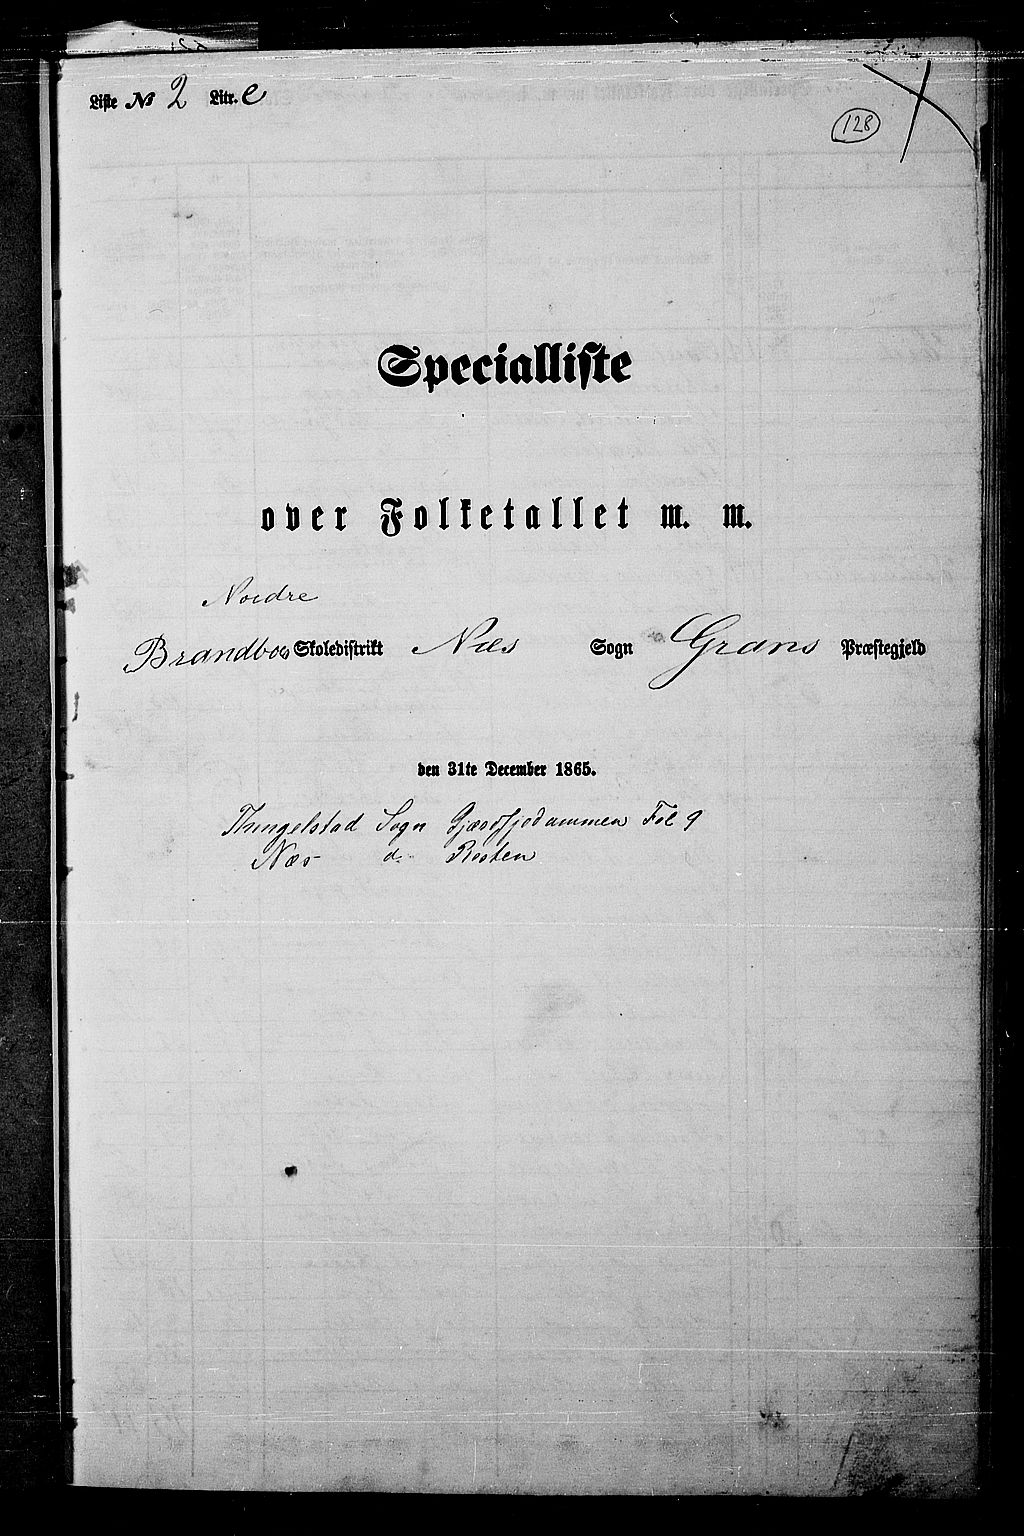 Liste № 2 Litr. e
128
Specialliste
over Folketallet m. m.
Nordre
Brandbos Skoledistrikt Næs Sogn Grans Præstegjeld
den 31te December 1865.
Thingelstad Sogn Fol 9
Næs d. Resten